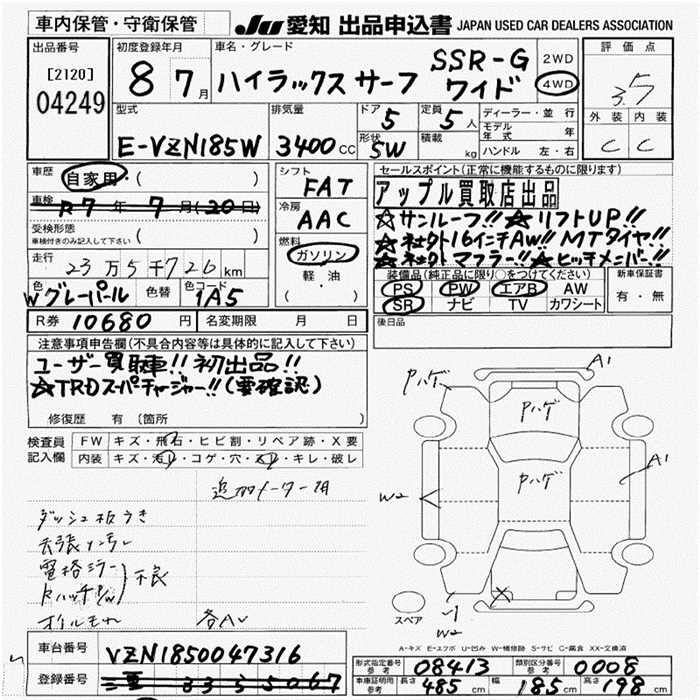 車内保管・守衛保管
JU 愛知 出品申込書 JAPAN USED CAR DEALERS ASSOCIATION
出品番号
[2120]
04249
初度登録年月
8 7月
車名・グレード
ハイラックスサーフ SSR-G ワイド
2WD
4WD
評価点
3.5
外装 内装
C C
型式
E-VZN185W
排気量
3400cc
ドア
5
形状
5W
定員
5人
積載
kg
ディーラー・並行
モデル年式 年
ハンドル 左・右
車歴
自家用・( )
車検
R7年7月(20日)
受検形態
車検付きのみ記入して下さい ( )
走行
23万5千726km
色
Wグレーパール
色替
色コード
1A5
シフト
FAT
冷房
AAC
燃料
ガソリン
軽・油
( )
セールスポイント(正常に機能するものに限ります)
アップル買取店出品
☆サンルーフ!! ☆リフトUP!!
☆社外16インチAW!! MTタイヤ!!
☆社外マフラー!! ☆ヒッチメンバー!!
装備品(純正品に限り○をつけてください)
PS PW エアB AW
SR ナビ TV カワシート
新車保証書
有・無
後日品
R券 10680円
名変期限 月 日
注意事項申告欄(不具合内容等は具体的に記入して下さい)
ユーザー買取車!! 初出品!!
☆TRDスーパーチャージャー!!(要確認)
修復歴 有(箇所 )
検査員記入欄
FW キズ・飛石・ヒビ割・リペア跡・X要
内装 キズ・汚レ・コゲ・穴・スレ・キレ・破レ
追加メーター有
ダッシュ板うき
天張
電格ミラー
不良
オイルモレ
各AU
A1
Pハゲ
Pハゲ
Pハゲ
A1
W2
X
W2
スペア
A-キズ E-エクボ U-凹み W-補修跡 S-サビ C-腐食 XX-交換済
車台番号
VZN1850047316
登録番号
形式指定番号 参考 08413
類別区分番号 参考 0008
車庫証明用 参考 長さ 485cm 幅 185cm 高さ 198cm